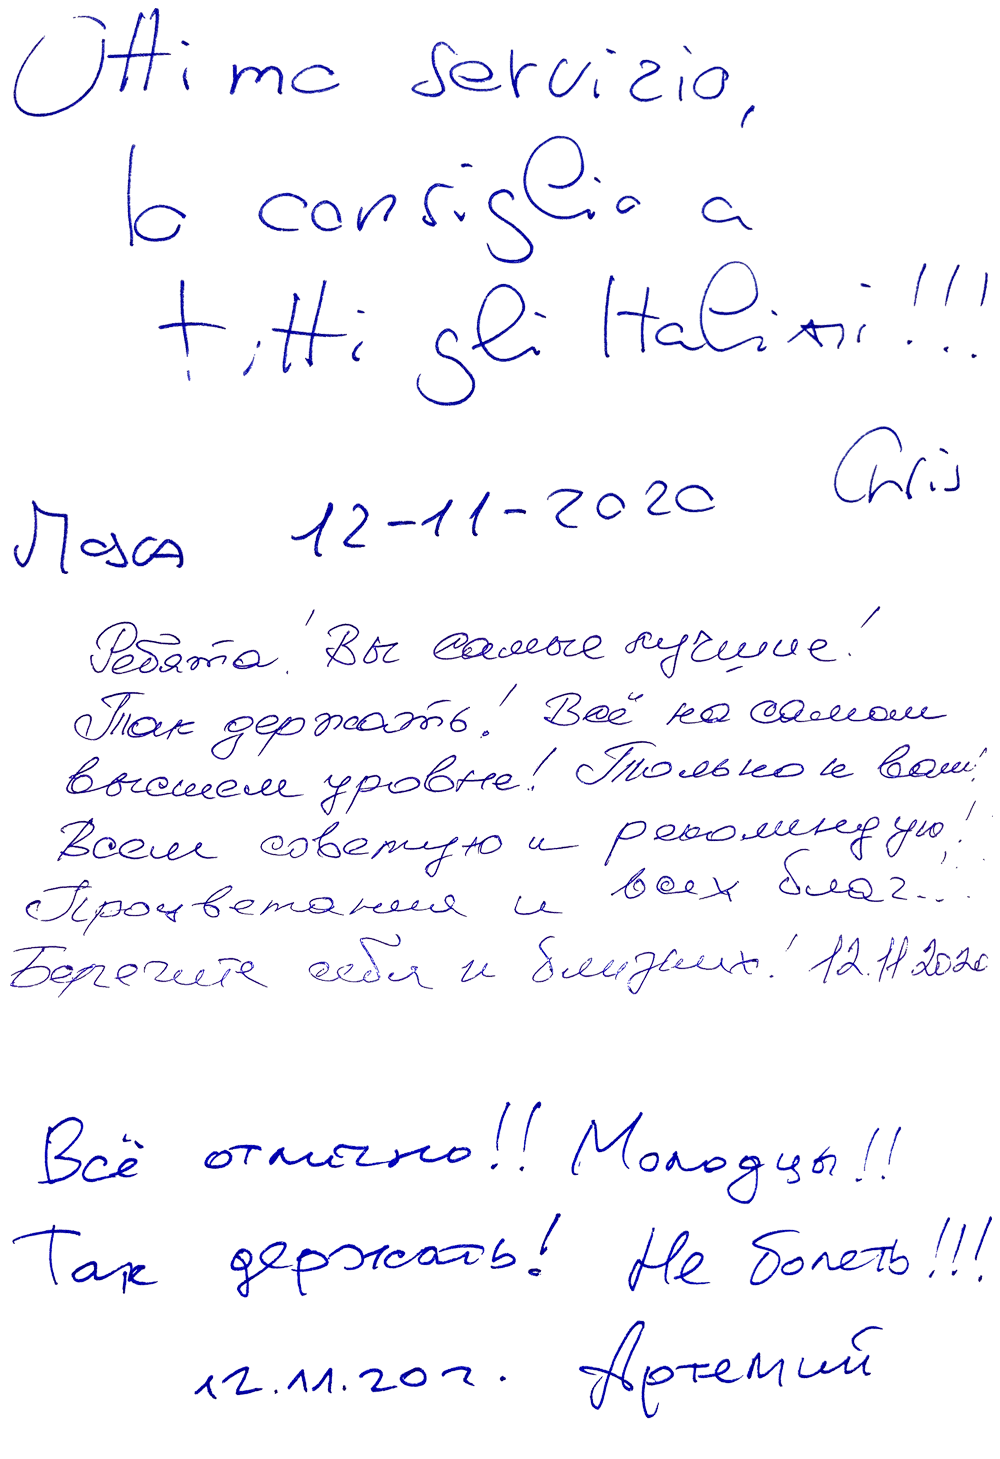 Ottimo servizio,
lo consiglio a
tutti gli Italiani!!!
Chris
12-11-2020
Ребята! Вы самые лучшие!
Так держать! Всё на самом
высшем уровне! Только к вам!
Всем советую и рекоминдую!
Процветания и всех благ...
Берегите себя и близких! 12.11.2020
Всё отлично!! Молодцы!!
Так держать! Не болеть!!!
12.11.20г. Артемий